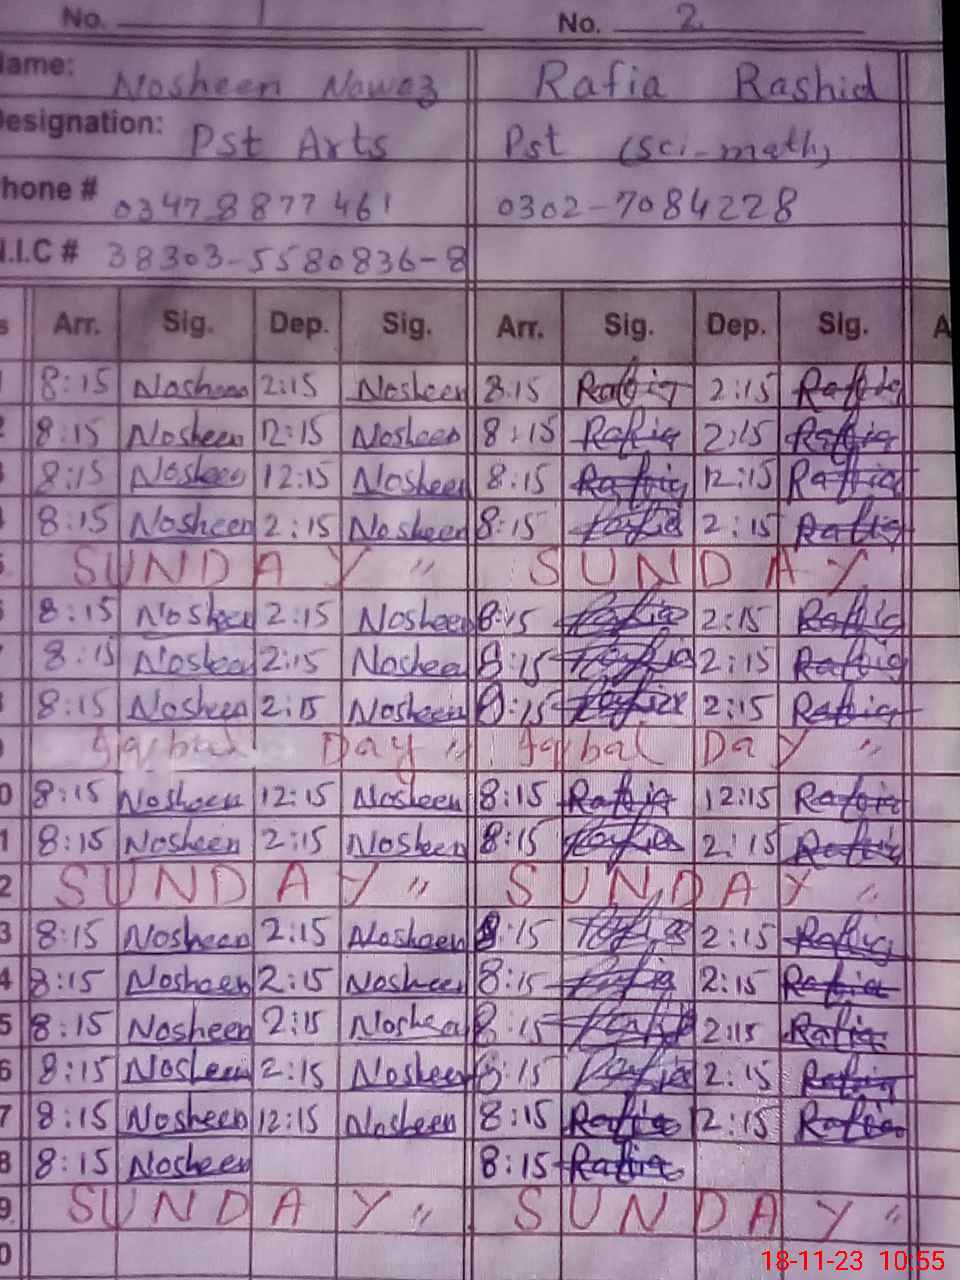 No. 1 No. 2
Name: Nosheen Nawaz Rafia Rashid
Designation: Pst Arts Pst (sci-math)
Phone # 03478877461 0302-7084228
N.I.C # 38303-5580836-8
s Arr. Sig. Dep. Sig. Arr. Sig. Dep. Sig. A
1 8:15 Nosheen 2:15 Nosheen 8:15 Rafia 2:15 Rafia
2 8:15 Nosheen 12:15 Nosheen 8:15 Rafia 2:15 Rafia
3 8:15 Nosheen 12:15 Nosheen 8:15 Rafia 12:15 Rafia
4 8:15 Nosheen 2:15 Nosheen 8:15 Rafia 2:15 Rafia
5 SUNDAY " SUNDAY
6 8:15 Nosheen 2:15 Nosheen 8:15 Rafia 2:15 Rafia
7 8:15 Nosheen 2:15 Nosheen 8:15 Rafia 2:15 Rafia
8 8:15 Nosheen 2:15 Nosheen 8:15 Rafia 2:15 Rafia
9 Iqbal Day " Iqbal Day "
0 8:15 Nosheen 12:15 Nosheen 8:15 Rafia 12:15 Rafia
1 8:15 Nosheen 2:15 Nosheen 8:15 Rafia 2:15 Rafia
2 SUNDAY " SUNDAY "
3 8:15 Nosheen 2:15 Nosheen 8:15 Rafia 2:15 Rafia
4 8:15 Nosheen 2:15 Nosheen 8:15 Rafia 2:15 Rafia
5 8:15 Nosheen 2:15 Nosheen 8:15 Rafia 2:15 Rafia
6 8:15 Nosheen 2:15 Nosheen 8:15 Rafia 2:15 Rafia
7 8:15 Nosheen 12:15 Nosheen 8:15 Rafia 12:15 Rafia
8 8:15 Nosheen 8:15 Rafia
9 SUNDAY " SUNDAY "
0
18-11-23 10:55